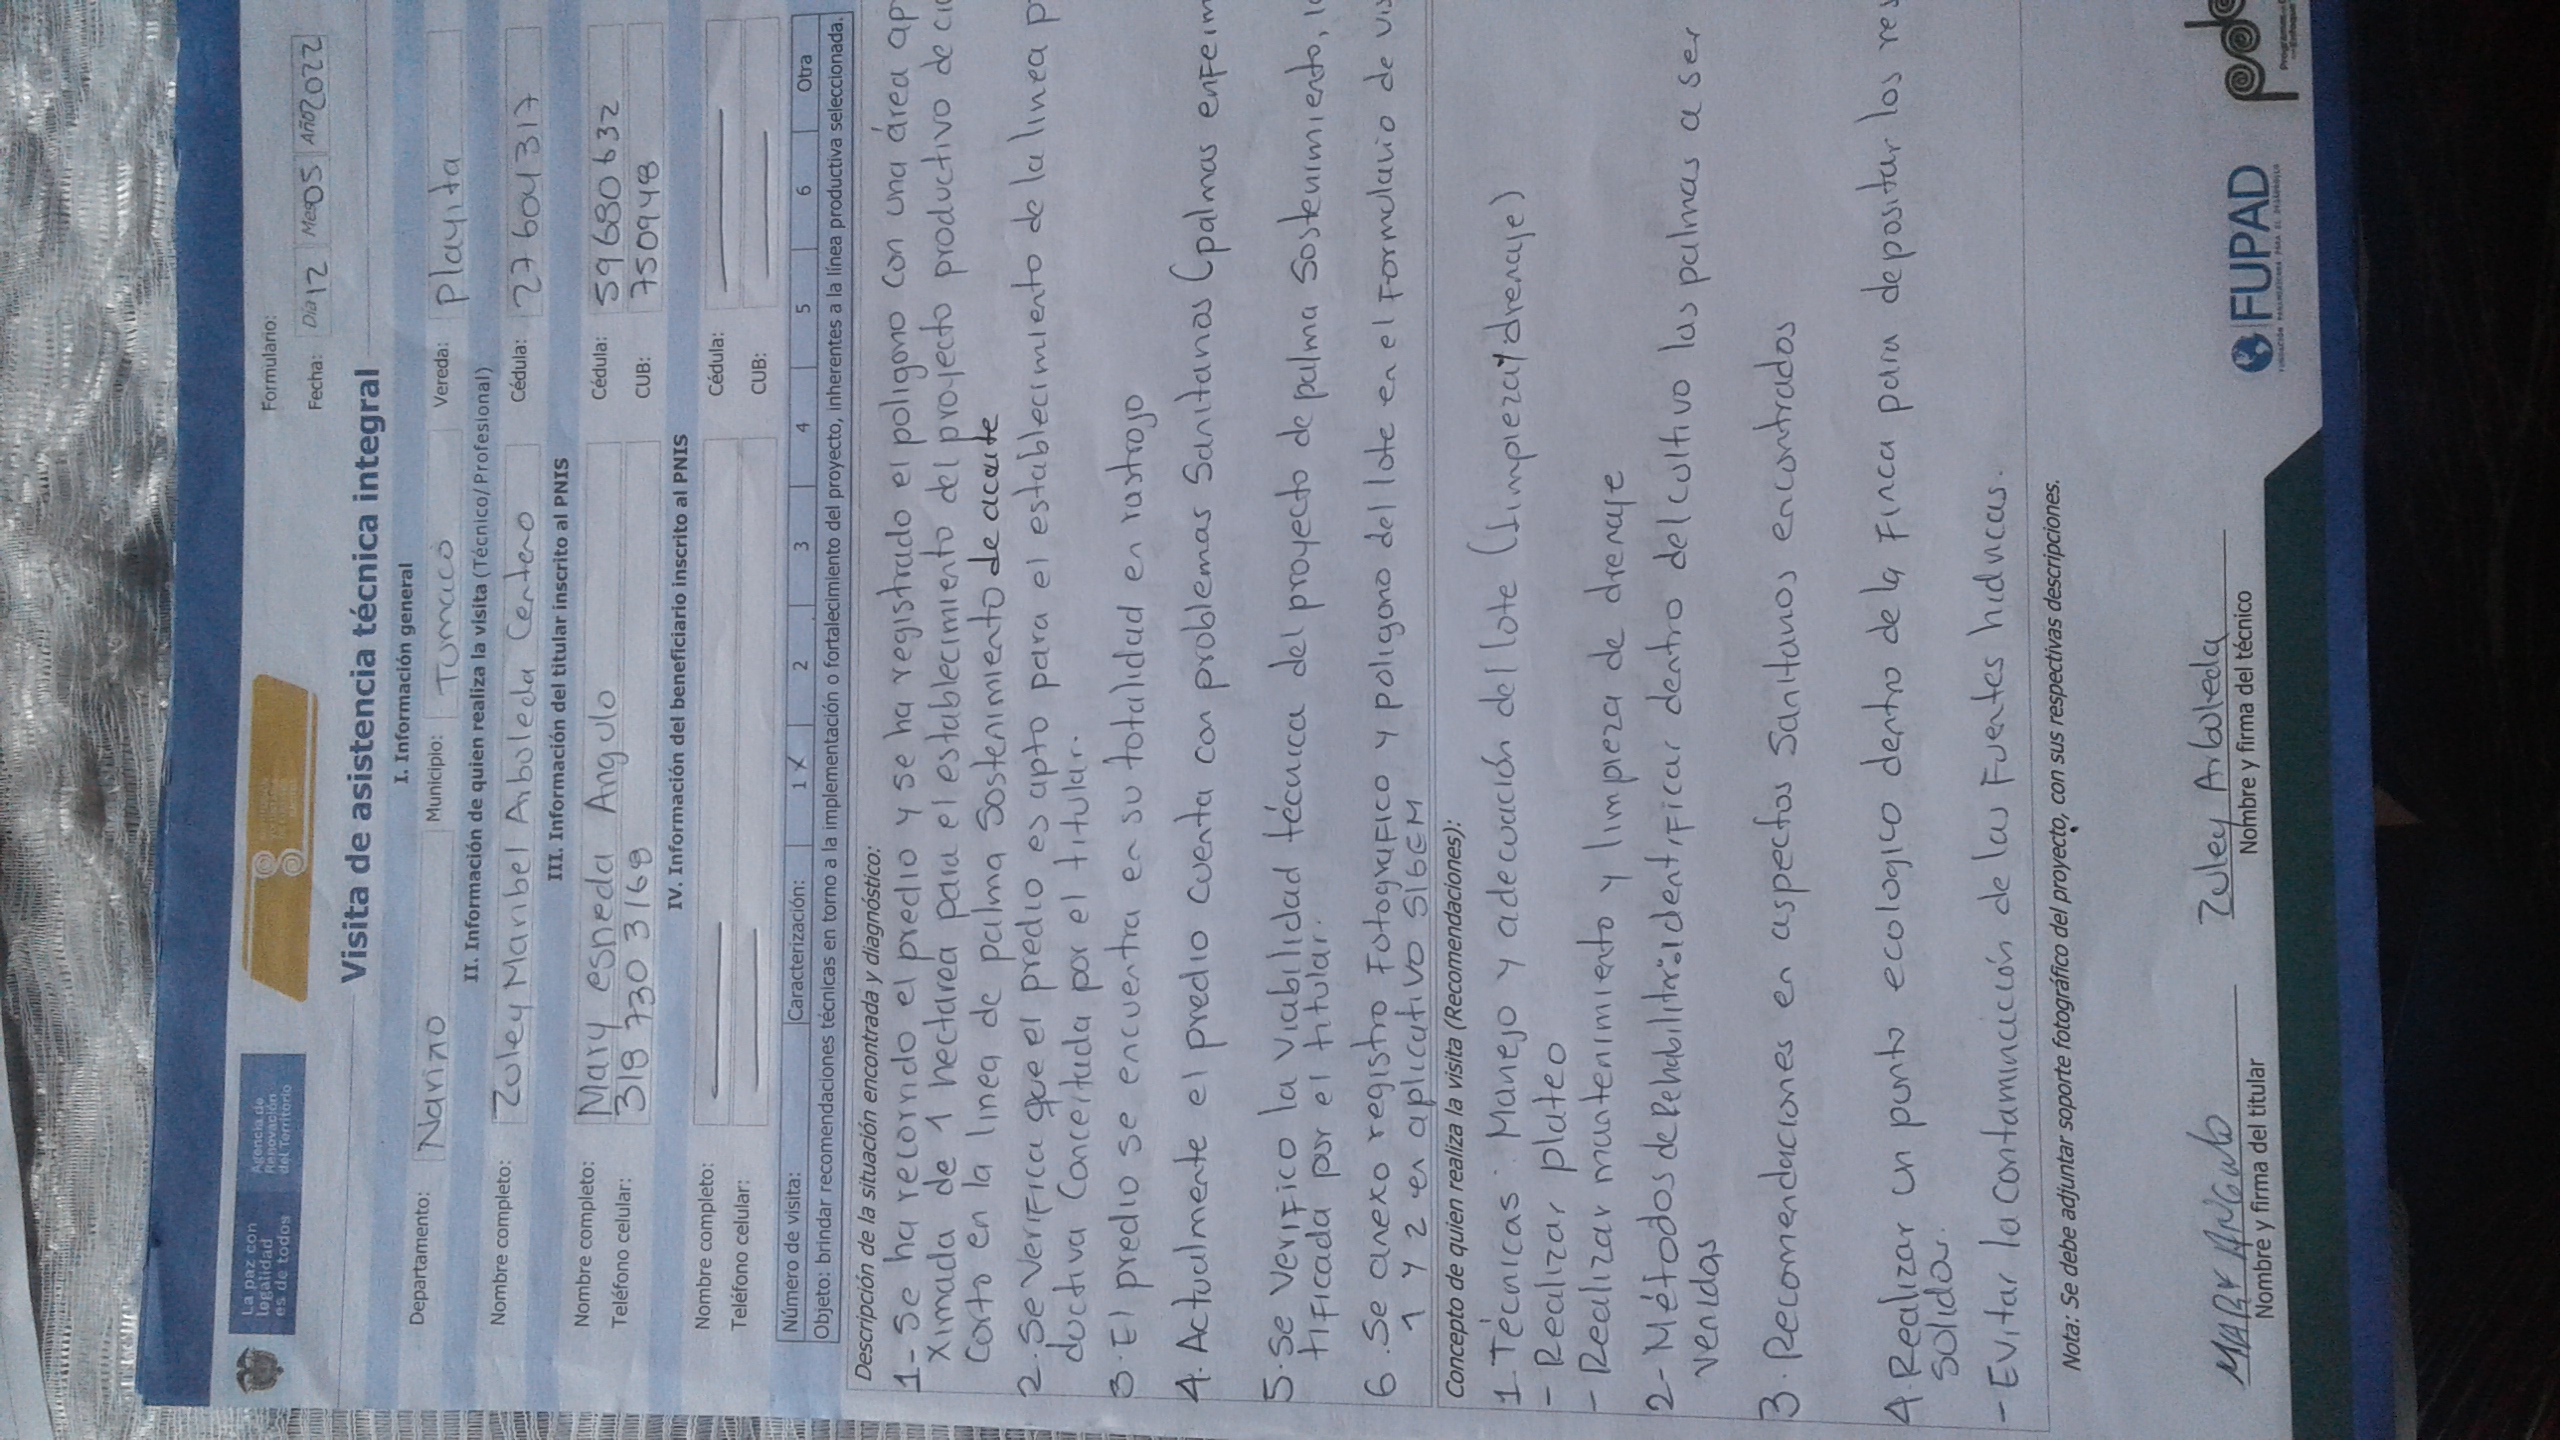 La paz con
legalidad
es de todos
Agencia de
Renovación
del Territorio
Formulario:
Fecha: Día 12 Mes 05 Año 2022
Visita de asistencia técnica integral
I. Información general
Departamento: Nariño Municipio: Tumaco Vereda: Playita
II. Información de quien realiza la visita (Técnico/Profesional)
Nombre completo: Zuley Maribel Arboleda Centeno Cédula: 27604317
III. Información del titular inscrito al PNIS
Nombre completo: Mary esneda Angulo Cédula: 59680632
Teléfono celular: 318 730 3168 CUB: 750948
IV. Información del beneficiario inscrito al PNIS
Nombre completo: Cédula:
Teléfono celular: CUB:
Número de visita: Caracterización: 1 X 2 3 4 5 6 Otra
Objeto: brindar recomendaciones técnicas en torno a la implementación o fortalecimiento del proyecto, inherentes a la línea productiva seleccionada.
Descripción de la situación encontrada y diagnóstico:
1-- Se ha recorrido el predio y se ha registrado el poligono con una área ap
ximada de 1 hectarea para el establecimiento del proyecto productivo de cic
corto en la linea de palma Sostenimiento de aceite
2- Se verifica que el predio es apto para el establecimiento de la linea p
ductiva Concertada por el titular.
3. El predio se encuentra en su totalidad en rastrojo
4. Actualmente el predio cuenta con problemas Sanitarios (palmas enferm
5. Se Verifico la viabilidad técnica del proyecto de palma Sostenimiento, id
tificada por el titular.
6. Se anexo registro Fotografico y poligono del lote en el Formulario de vis
1 y 2 en aplicativo SIGEM
Concepto de quien realiza la visita (Recomendaciones):
1- Técnicas: Manejo y adecuación del lote (Limpieza y drenaje)
- Realizar plateo
- Realizar mantenimiento y limpieza de drenaje
2- Métodos de Rehabilitar: identificar dentro del cultivo las palmas a ser
venidas
3. Recomendaciones en aspectos Sanitarios encontrados
4. Realizar un punto ecologico dentro de la Finca para depositar los res
Solidos.
- Evitar la Contaminación de las Fuentes hidricas.
Nota: Se debe adjuntar soporte fotográfico del proyecto, con sus respectivas descripciones.
MARY ANGULO Zuley Arboleda
Nombre y firma del titular Nombre y firma del técnico
FUPAD
FUNDACIÓN PANAMERICANA PARA EL DESARROLLO